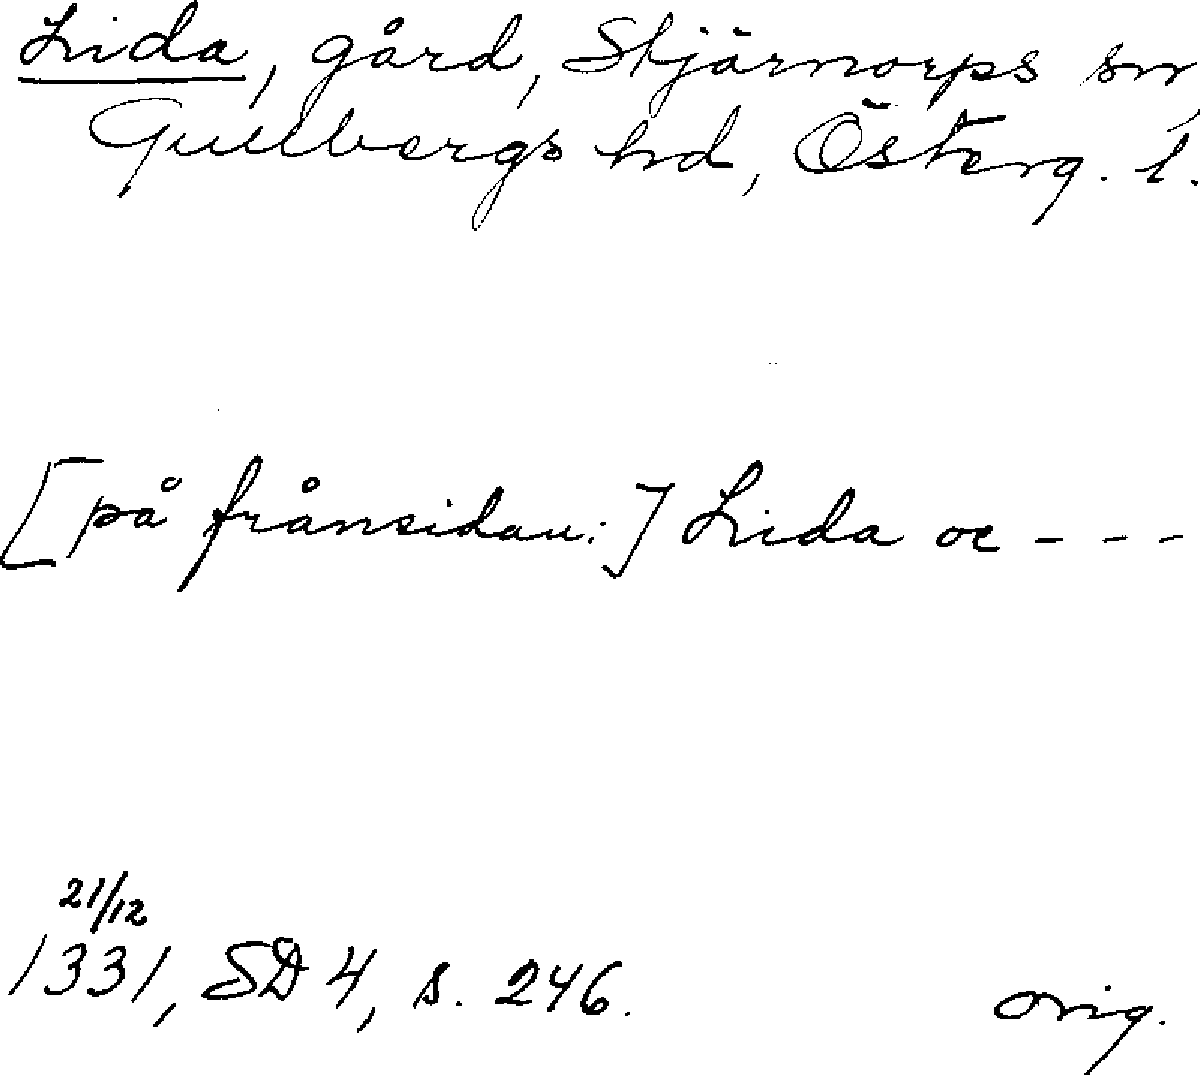 Lida, gård, Stjärnorps sn,
Gullbergs hd, Österg. l.
[på frånsidan:] Lida oc - - -
21/12
1331, SD 4, s. 246. orig.